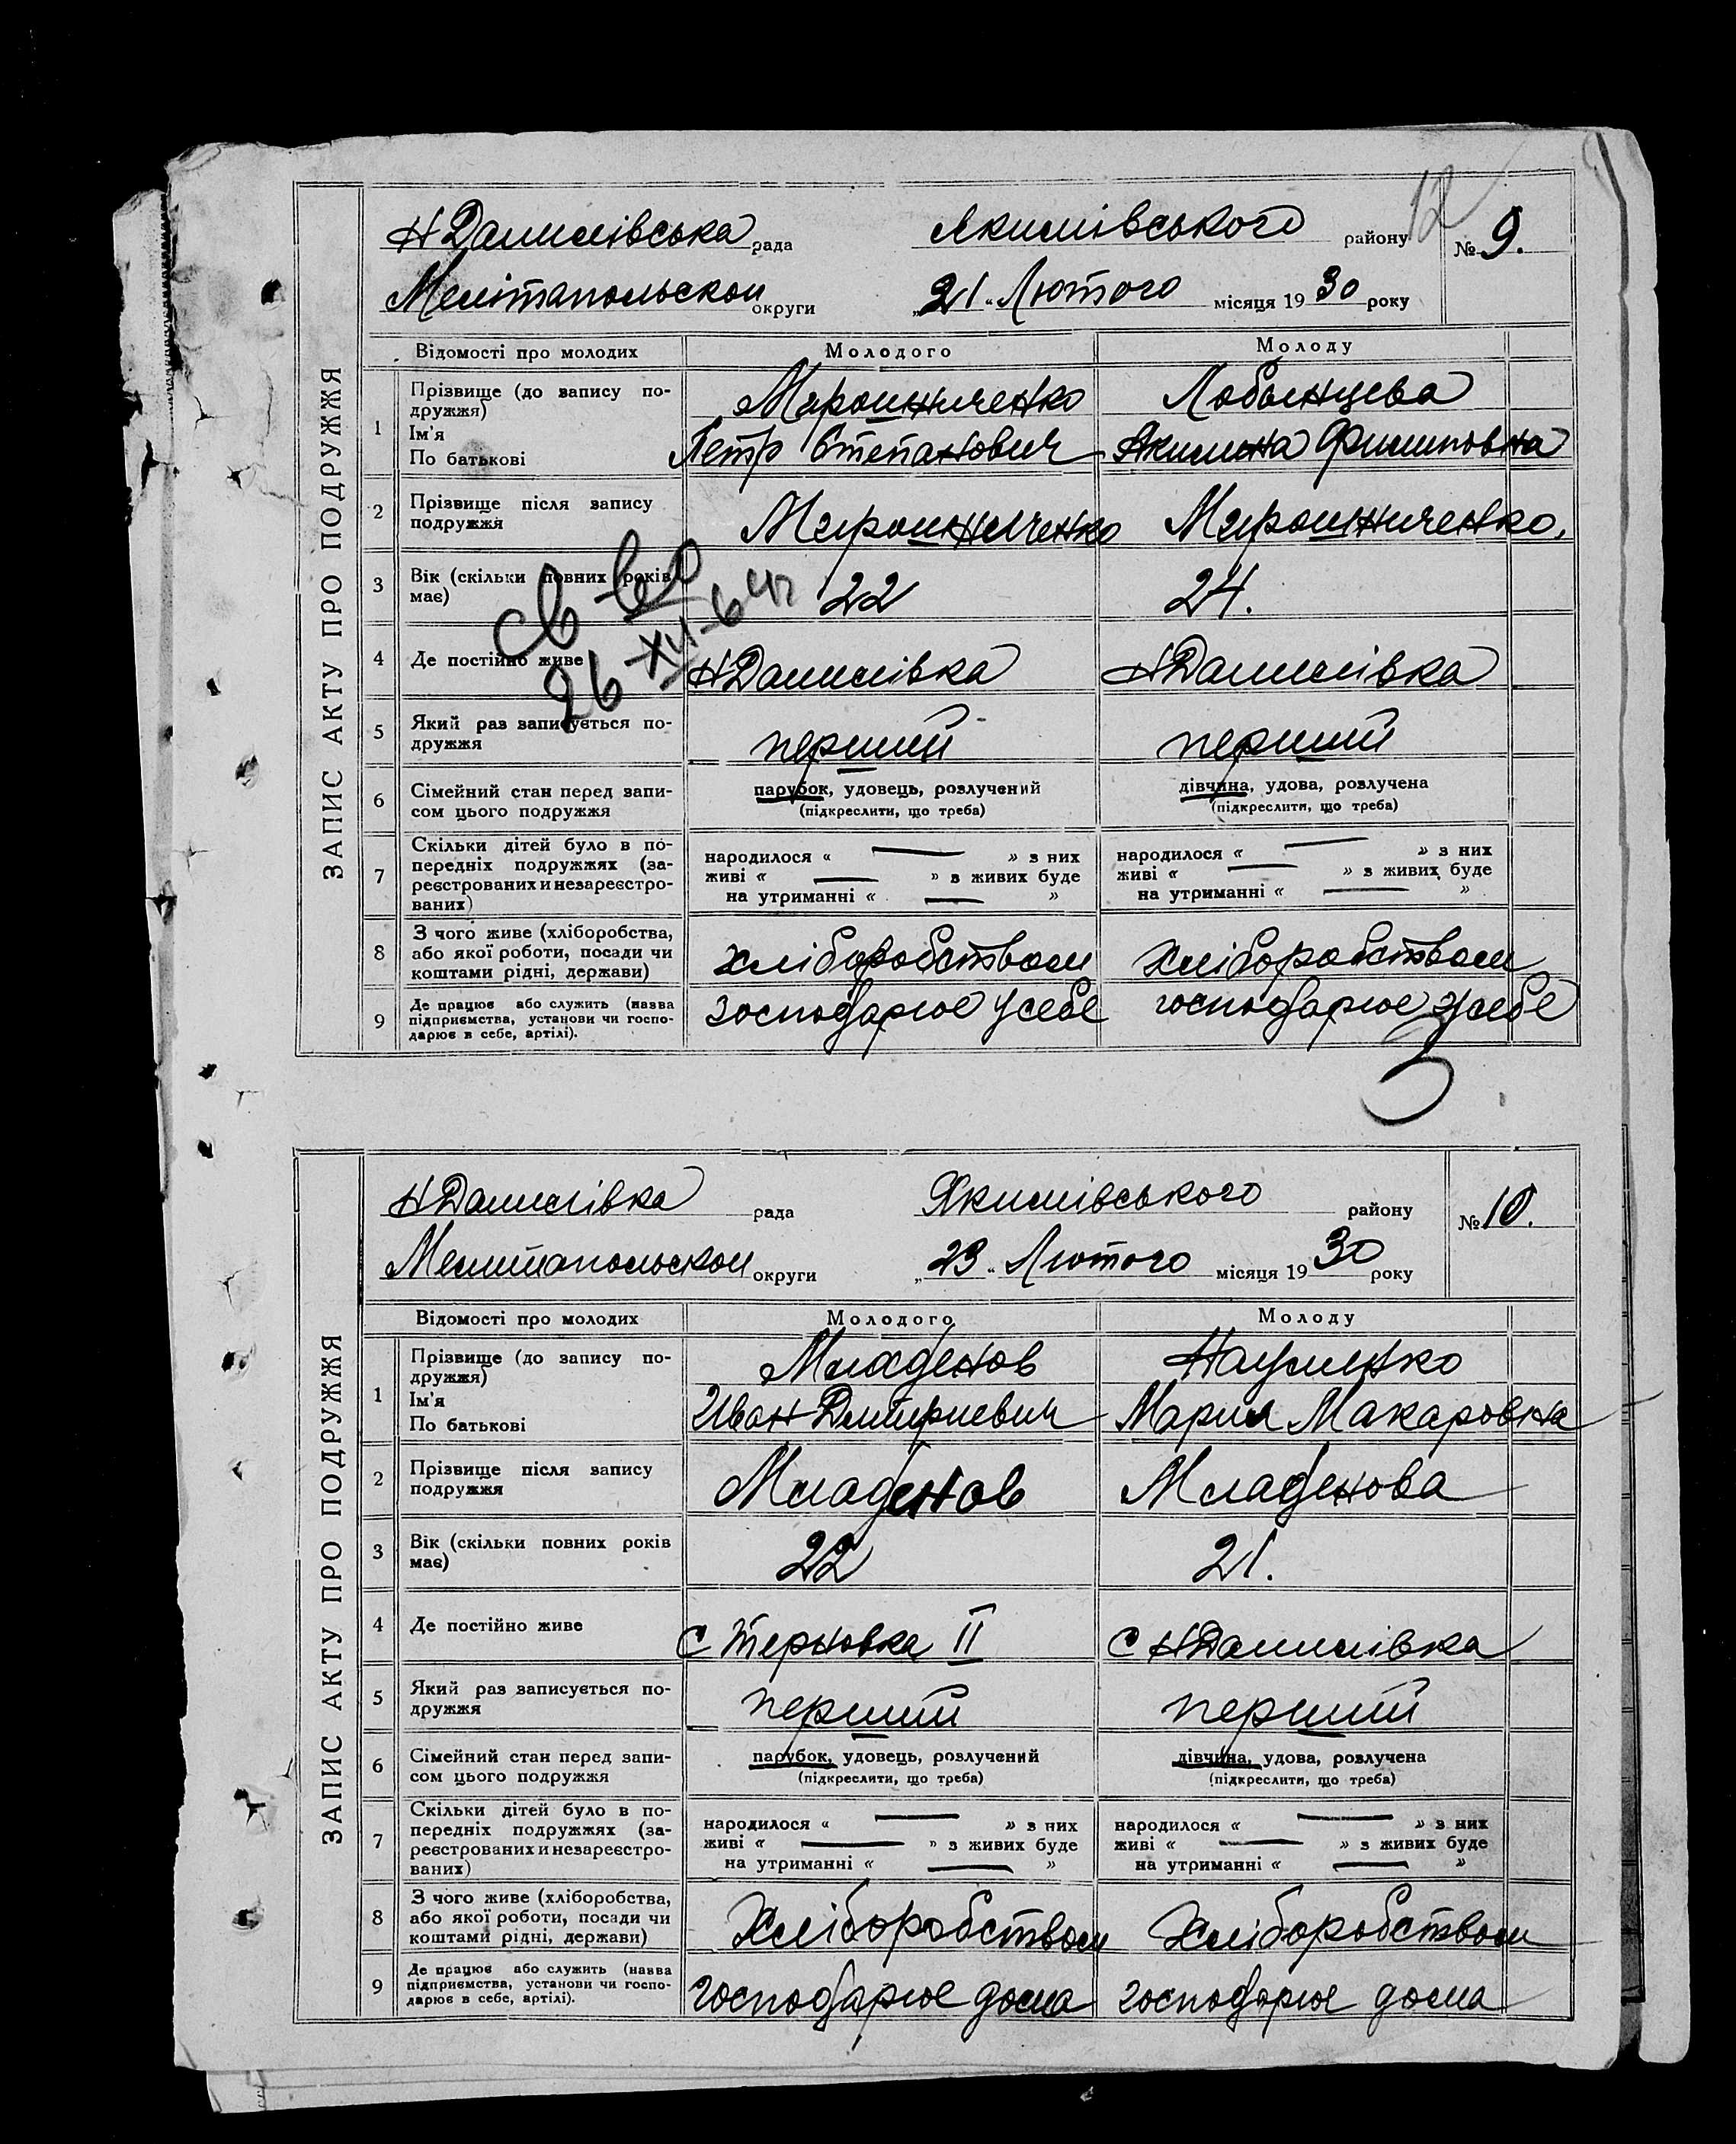 ЗАПИС АКТУ ПРО ПОДРУЖЖЯ
12
НДанилівська рада Якимівського району № 9.
Мелітапольскои округи „21" Лютого місяця 1930 року
Відомості про молодих Молодого Молоду
1 Прізвище (до запису по-
дружжя) Мирошниченко Лобынцева
Ім'я
По батькові Петр Степанович Акилина Филиповна
2 Прізвище після запису
подружжя Мирошниченко Мирошниченко,
3 Вік (скільки повних років
має) 22 24.
св-во
26-XII-64г
4 Де постійно живе НДанилівка НДанилівка
5 Який раз записується по-
дружжя перший перший
6 Сімейний стан перед запи-
сом цього подружжя
парубок, удовець, розлучений дівчина, удова, розлучена
(підкреслити, що треба) (підкреслити, що треба)
7 Скільки дітей було в по-
передніх подружжях (за-
реєстрованих и незареєстро-
ваних)
народилося « — » з них народилося « — » з них
живі « — » з живих буде живі « — » з живих буде
на утриманні « — » на утриманні « — »
8 З чого живе (хліборобства,
або якої роботи, посади чи
коштами рідні, держави) хліборобством хліборобством
9 Де працює або служить (назва
підприємства, установи чи госпо-
дарює в себе, артілі). господарює усебе господарює усебе
ЗАПИС АКТУ ПРО ПОДРУЖЖЯ
НДанилівка рада Якимівського району № 10.
Мелитапольскои округи „23" Лютого місяця 1930 року
Відомості про молодих Молодого Молоду
1 Прізвище (до запису по-
дружжя) Младенов Науменко
Ім'я
По батькові Иван Дмитриевич Мария Макаровна
2 Прізвище після запису
подружжя Младенов Младенова
3 Вік (скільки повних років
має) 22 21.
4 Де постійно живе с Терновка II с НДанилівка
5 Який раз записується по-
дружжя перший перший
6 Сімейний стан перед запи-
сом цього подружжя
парубок, удовець, розлучений дівчина, удова, розлучена
(підкреслити, що треба) (підкреслити, що треба)
7 Скільки дітей було в по-
передніх подружжях (за-
реєстрованих и незареєстро-
ваних)
народилося « — » з них народилося « — » з них
живі « — » з живих буде живі « — » з живих буде
на утриманні « — » на утриманні « — »
8 З чого живе (хліборобства,
або якої роботи, посади чи
коштами рідні, держави) Хліборобством Хліборобством
9 Де працює або служить (назва
підприємства, установи чи госпо-
дарює в себе, артілі). господарює дома господарює дома